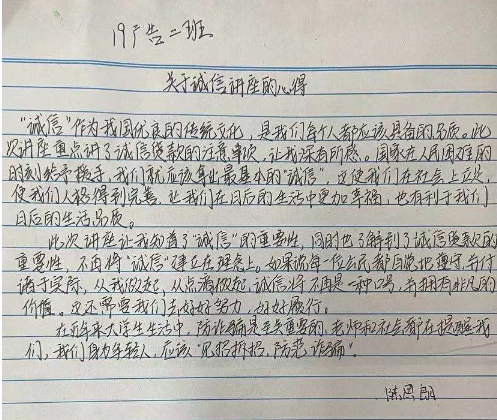 19广告二班
关于诚信讲座的心得
"诚信"作为我国优良的传统文化，是我们每个人都应该具备的品质。此
次讲座重点讲了诚信贷款的注意事项，让我深有所感。国家在人民困难的
时刻给予援手，我们就应该拿出最基本的"诚信"，这使我们在社会上立足，
使我们人格得到完善，让我们在日后的生活中更加幸福，也有利于我们
日后的生活品质。
此次讲座让我知道了"诚信"的重要性，同时也了解到了诚信贷款的
重要性，不再将"诚信"建立在理念上。如果说每一位公民都自觉地遵守并付
诸于实际，从我做起，从点滴做起，诚信将不再是一种口号，并拥有非凡的
价值。这还需要我们去好好努力，好好履行。
在后来大学生生活中，防诈骗是至关重要的，老师和社会都在提醒我
们，我们身为年轻人，应该"见招拆招，防范诈骗"。
陈思朗